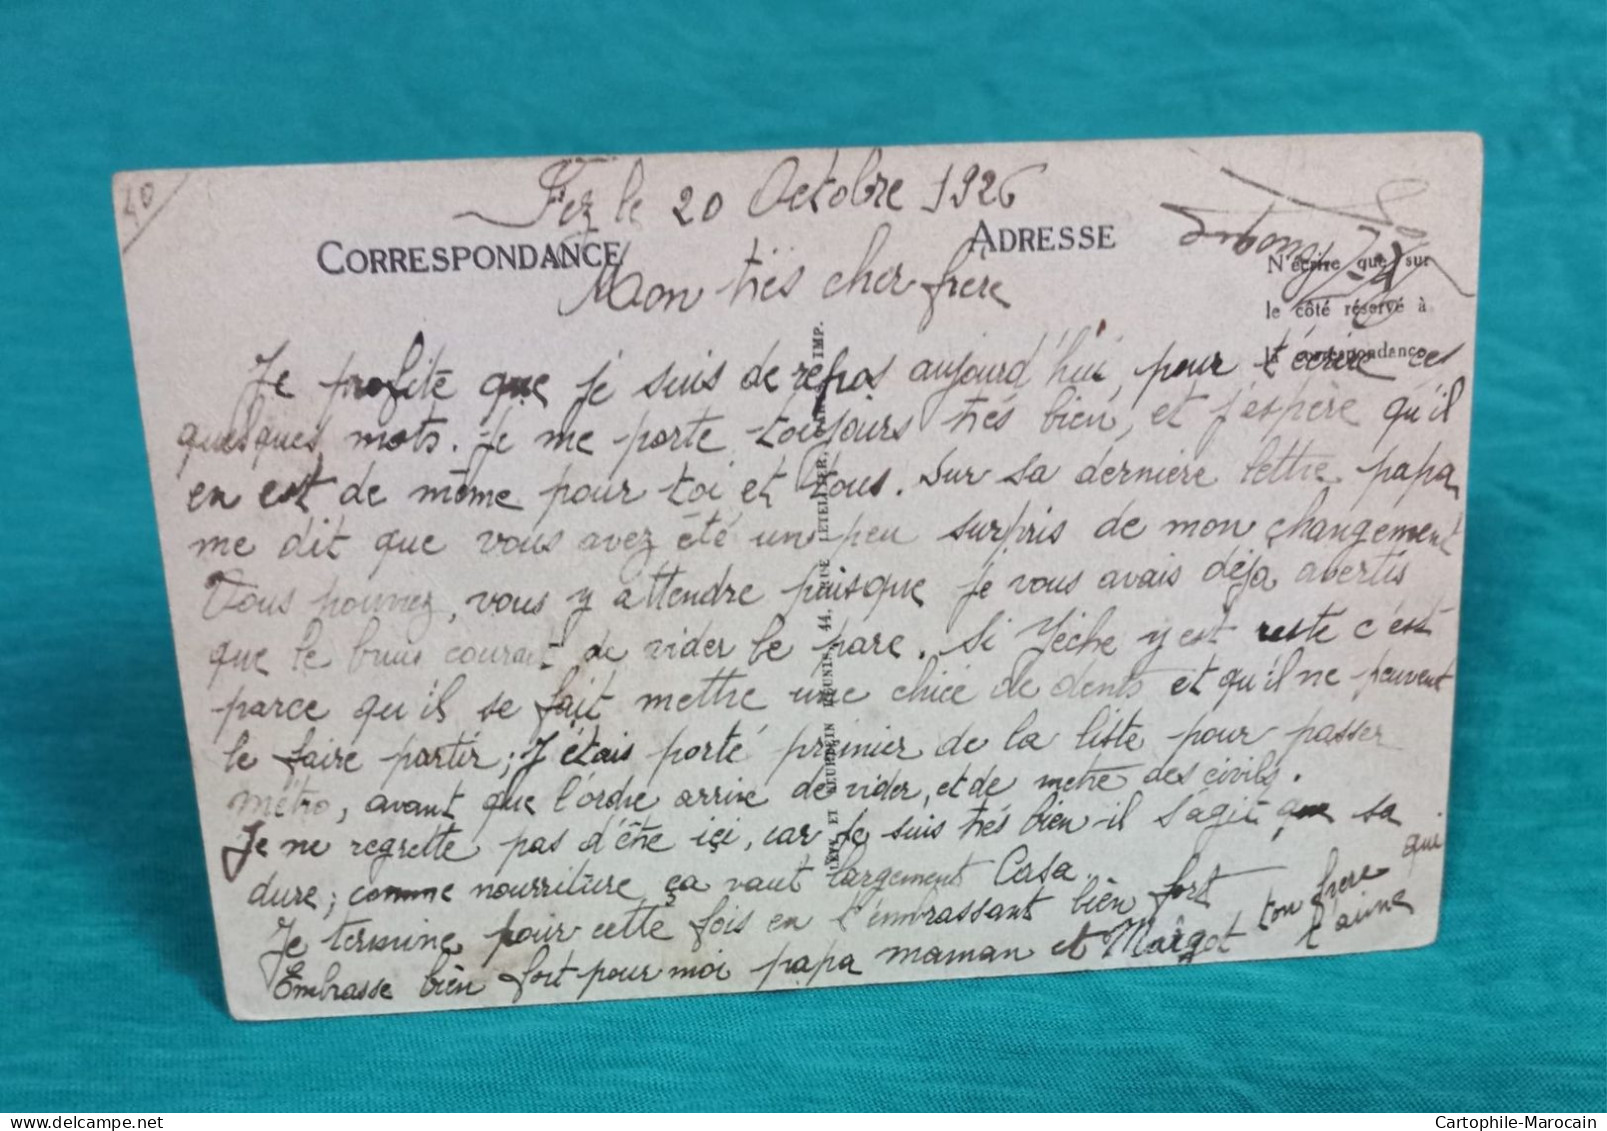 10
Fez le 20 Octobre 1926
CORRESPONDANCE
ADRESSE
N'écrire que sur
le côté réservé à
la correspondance
Mon très cher frère
Je profite que je suis de repos aujourd'hui, pour t'écrire ces
quelques mots. Je me porte toujours très bien, et j'espère qu'il
en est de même pour toi et tous. Sur sa dernière lettre papa
me dit que vous avez été un peu surpris de mon changement
Vous pouviez, vous y attendre puisque je vous avais déja avertis
que le bruis courait de vider le parc. Si Yèche y est reste c'est
parce qu'il se fait mettre une chicé de dents et qu'il ne peuvent
le faire partir; J'étais porté premier de la liste pour passer
métro, avant que l'ordre arrive de vider, et de metre des civils.
Je ne regrette pas d'être içi, car je suis très bien il s'agit que sa
dure; comme nourriture ça vaut largement Casa.
Je termine pour cette fois en t'embrassant bien fort
Embrasse bien fort pour moi papa maman et Margot ton frere qui
t'aime
LEVY ET NEURDEIN RÉUNIS, 44, RUE LETELLIER, PARIS. IMP.
Cartophile-Marocain